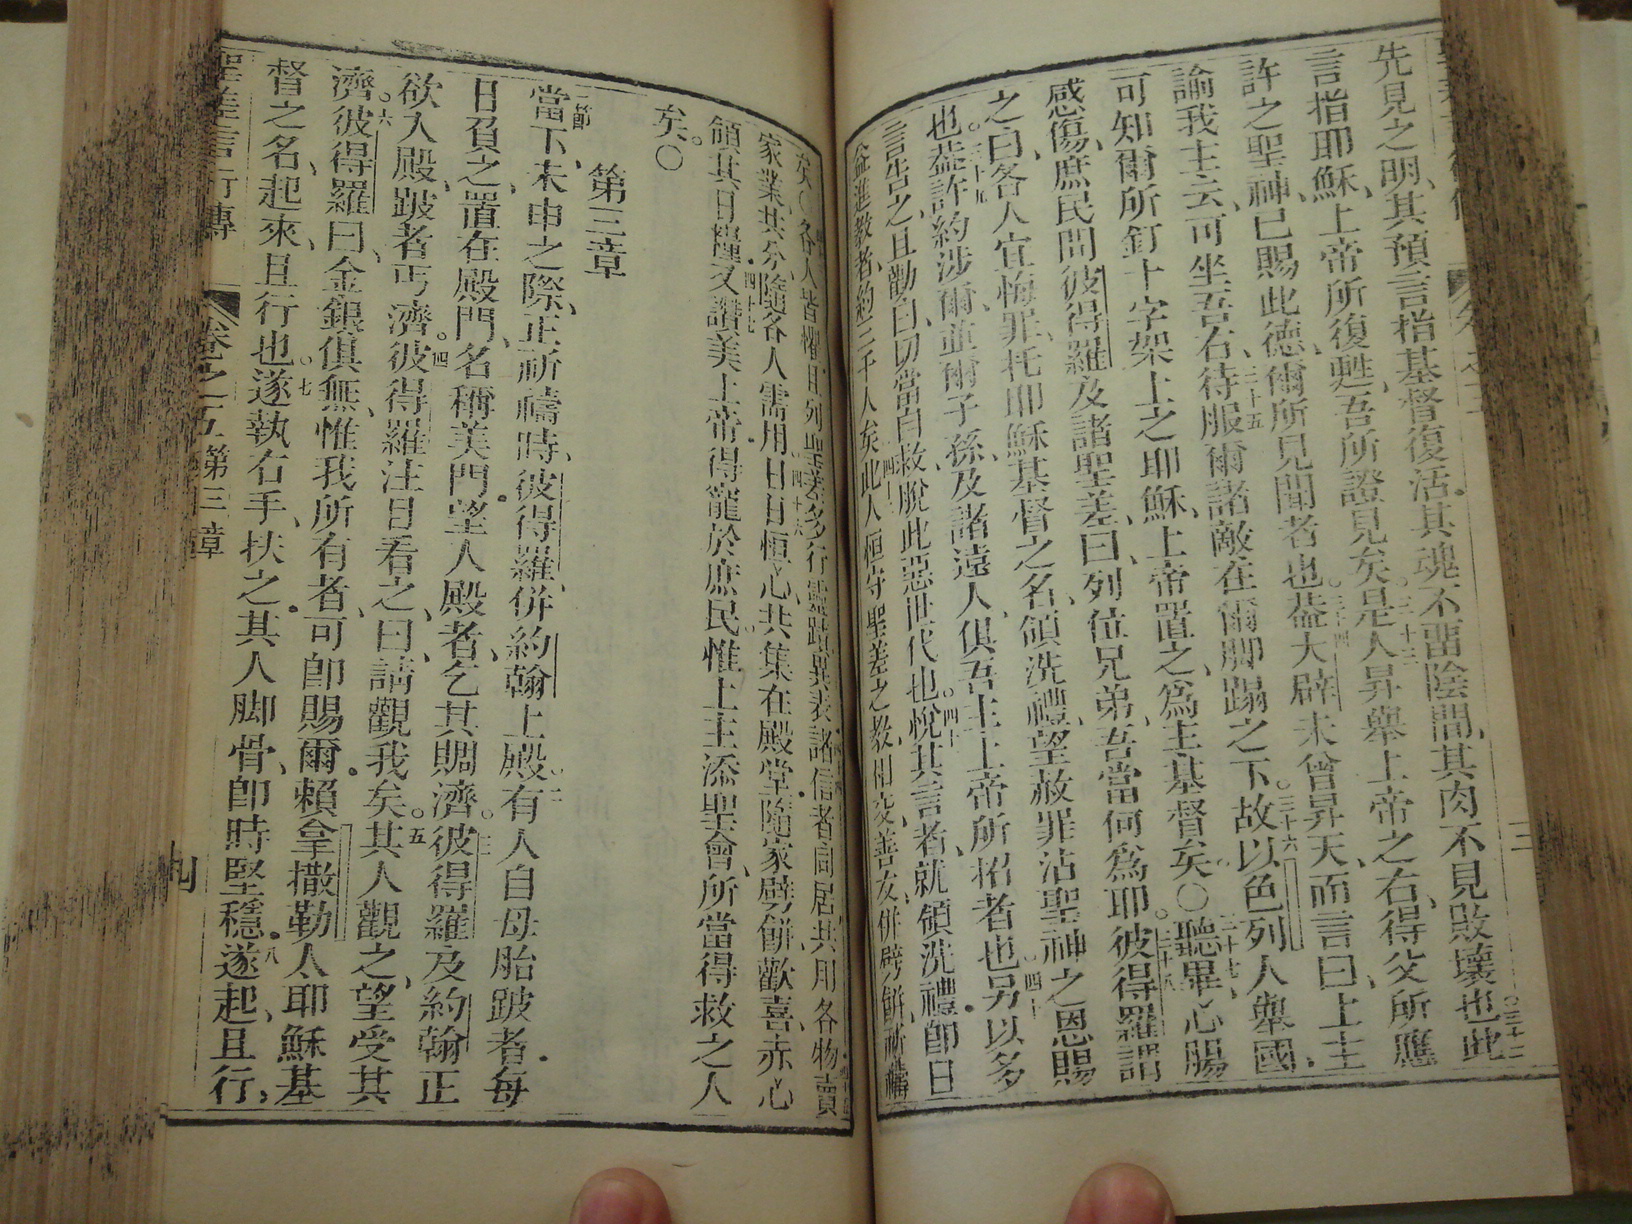 先見之明、其預言指基督復活、其魂不畱陰間、其肉不見敗壞也、此
言指耶穌、上帝所復甦、吾所證見矣。三十三是人昇舉上帝之右、得父所應
許之聖神、已賜此德、爾所見聞者也。三十四葢大辟未曾昇天、而言曰、上主
諭我主云、可坐吾右、三十五待服爾諸敵在爾脚蹋之下。三十六故以色列人舉國、
可知爾所釘十字架上之耶穌、上帝置之、爲主基督矣。○三十七聽畢、心腸
感傷、庶民問彼得羅及諸聖差、曰、列位兄弟、吾當何爲耶。三十八彼得羅謂
之曰、各人宜悔罪、托耶穌基督之名、領洗禮、望赦罪沾聖神之恩賜
也。三十九葢許約涉爾、並爾子孫、及諸遠人、俱吾主上帝所招者也。四十另以多
言告之、且勸曰、切當自救、脫此惡世代也。四十一悅其言者、就領洗禮、卽日
益進教者、約三千人矣。四十二此人恒守聖差之教、相交善友、併劈餅祈禱
矣。○各人皆懼、且列聖差多行靈蹟異表、諸信者同居共用各物、賣
家業共分、隨各人需用。四十六日日恒心、共集在殿堂、隨家劈餅、歡喜赤心
領其日糧。四十七又讚美上帝、得寵於庶民、惟上主添聖會、所當得救之人
矣。○
第三章
一節當下、未申之際、正祈禱時、彼得羅、併約翰上殿。二有人自母胎跛者、每
日負之、置在殿門、名稱美門、望人殿者、乞其賙濟。三彼得羅及約翰正
欲入殿、跛者丐濟。四彼得羅注目看之、曰、請觀我矣。五其人觀之、望受其
濟。六彼得羅曰、金銀俱無、惟我所有者、可卽賜爾、賴拿撒勒人耶穌基
督之名、起來、且行也。七遂執右手、扶之、其人脚骨、卽時堅穩。八遂起、且行、
聖差言行傳 卷之五 第三章 九